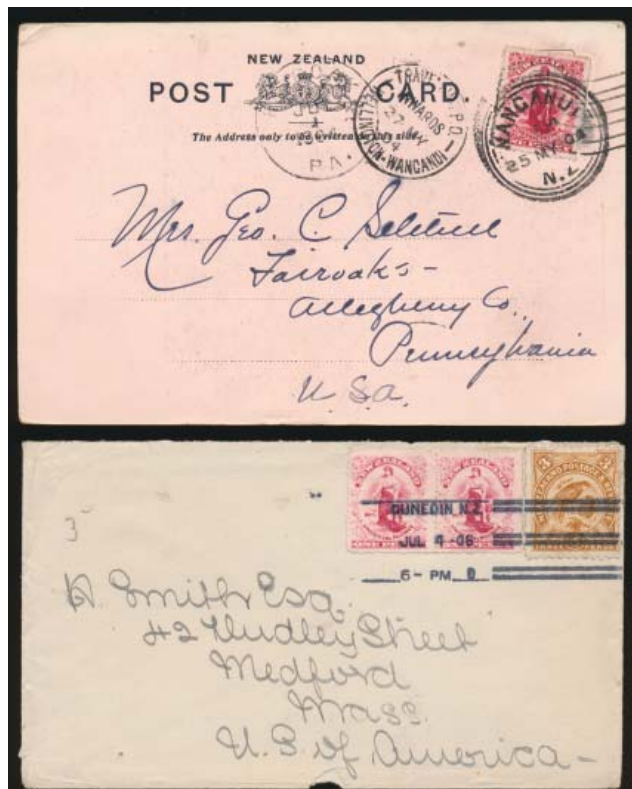 NEW ZEALAND
POST CARD.
The Address only to be written on this side.
PA.
TRAVEL P.O.
WARDS
27 MY
04
WELLINGTON-WANGANUI
WANGANUI
25 MY 04
N.Z
Mrs. Geo. C.
Fairoaks-
Allegheny Co.,
Pennsylvania
U.S.A.
NEW ZEALAND NEW ZEALAND
3 3
DUNEDIN N.Z.
JUL 4 -06
6- PM
3
Smith Esq.
42 Dudley Street
Medford
Mass.
U.S. of America-